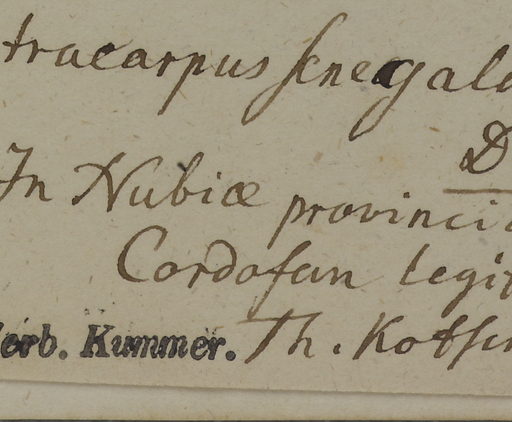 tracarpus senegale
D
In Nubiæ provinci
Cordofan legit
erb. Kummer. Th. Kotsch